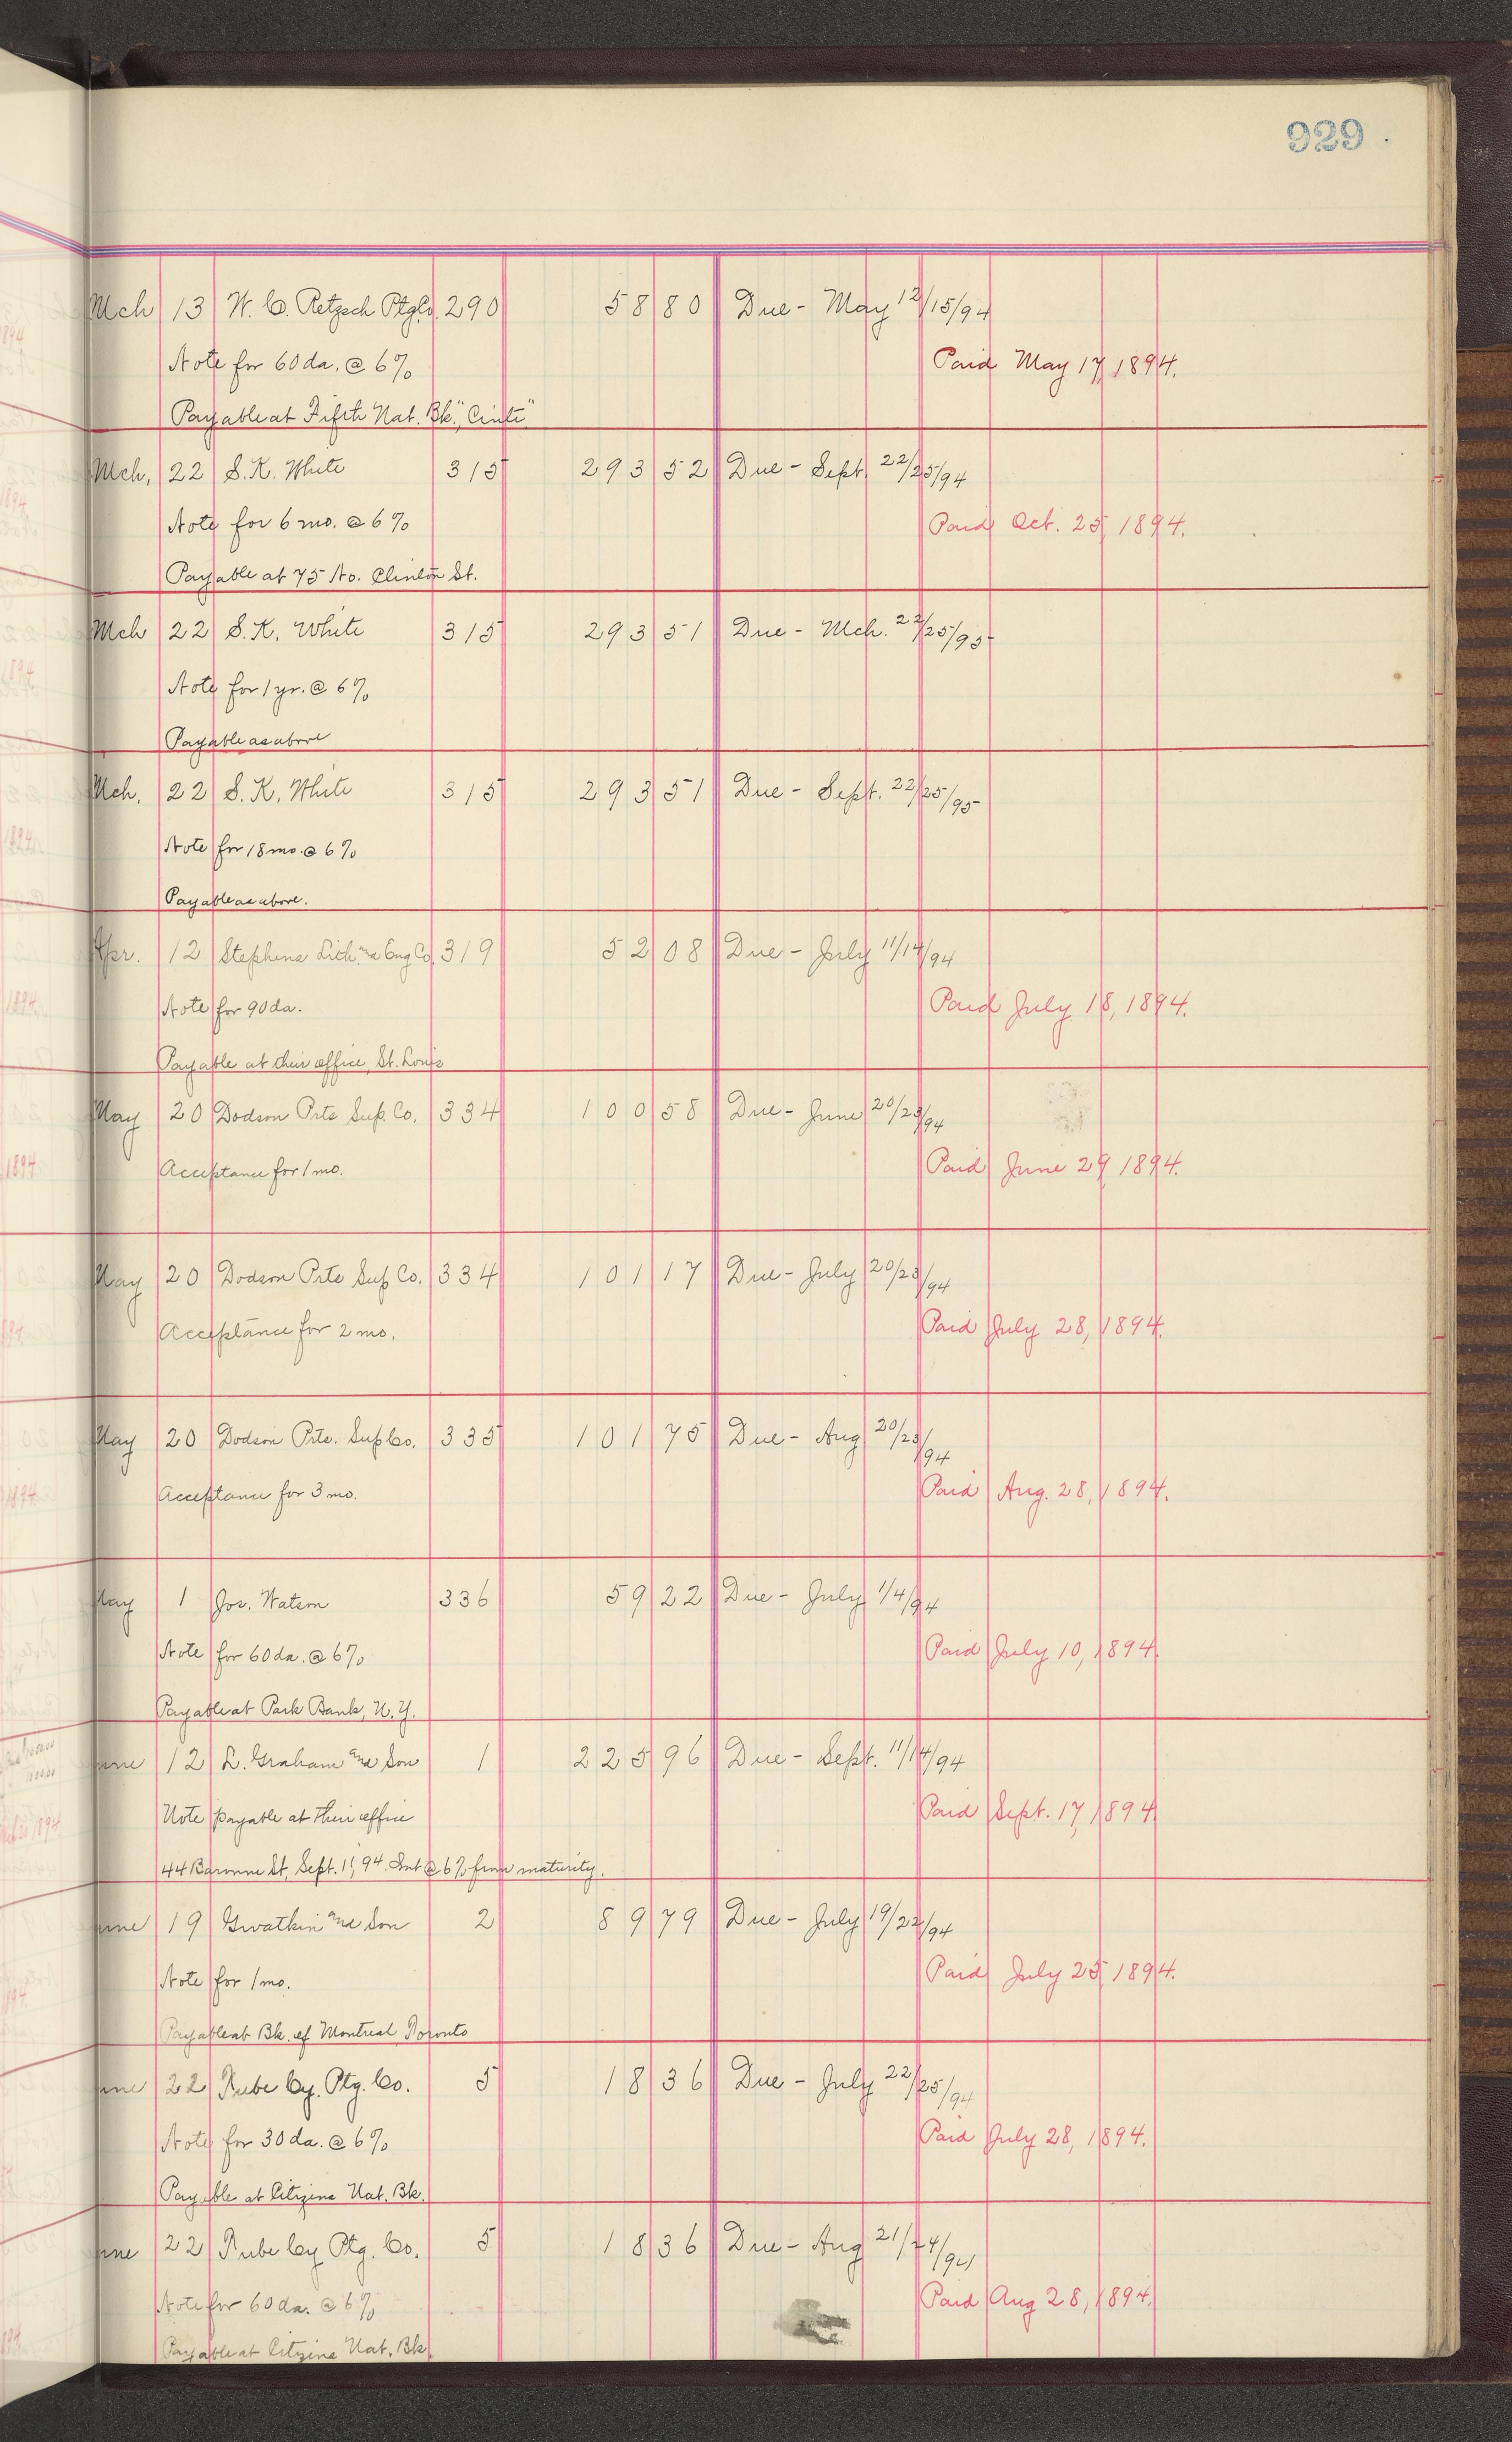 929
Mch 13 W. C. Retzsch Ptg Co. 290 58 80 Due - May 12/15/94
Note for 60 da. @ 6% Paid May 17, 1894.
Payable at Fifth Nat. Bk., "Cinti"
Mch. 22 S. K. White 315 293 52 Due - Sept. 22/25/94
Note for 6 mo. @ 6% Paid Oct. 25, 1894.
Payable at 75 No. Clinton St.
Mch 22 S. K. White 315 293 51 Due - Mch. 22/25/95
Note for 1 yr. @ 6%
Payable as above
Mch. 22 S. K. White 315 293 51 Due - Sept. 22/25/95
Note for 18 mo. @ 6%
Payable as above.
Apr. 12 Stephens Lith. and Eng Co. 319 52 08 Due - July 11/14/94
Note for 90 da. Paid July 18, 1894.
Payable at their office, St. Louis
May 20 Dodson Prts Sup. Co. 334 100 58 Due - June 20/23/94
Acceptance for 1 mo. Paid June 29, 1894.
May 20 Dodson Prts Sup Co. 334 101 17 Due - July 20/23/94
Acceptance for 2 mo. Paid July 28, 1894.
May 20 Dodson Prts. Sup Co. 335 101 75 Due - Aug 20/23/94
Acceptance for 3 mo. Paid Aug. 28, 1894.
May 1 Jos. Watson 336 59 22 Due - July 1/4/94
Note for 60 da. @ 6% Paid July 10, 1894.
Payable at Park Bank, N. Y.
June 12 L. Graham and Son 1 225 96 Due - Sept. 11/14/94
Note payable at their office Paid Sept. 17, 1894
44 Baronne St, Sept. 11, 94. Int @ 6% from maturity.
June 19 Gwatkin and Son 2 89 79 Due - July 19/22/94
Note for 1 mo. Paid July 25, 1894.
Payable at Bk. of Montreal, Toronto
June 22 Rube Cy. Ptg. Co. 5 18 36 Due - July 22/25/94
Note for 30 da. @ 6% Paid July 28, 1894.
Payable at Citizins Nat. Bk.
June 22 Rube Cy Ptg. Co. 5 18 36 Due - Aug 21/24/94
Note for 60 da. @ 6% Paid Aug 28, 1894.
Payable at Citizins Nat. Bk.